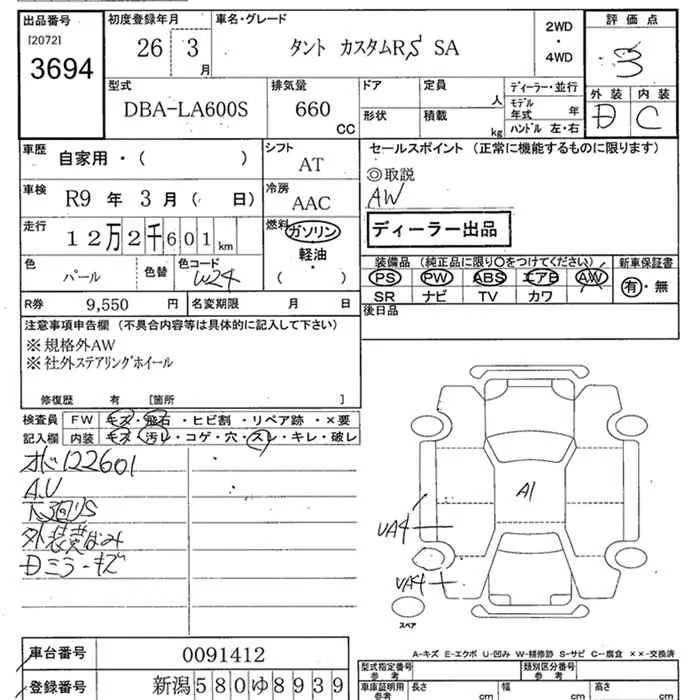 出品番号 初度登録年月 車名・グレード 2WD ・ 4WD 評価点
[2072] 3694 26 3月 タント カスタムRS SA 3
型式 排気量 ドア 定員 ディーラー・並行 外装 内装
DBA-LA600S 660 CC 形状 積載 人 kg モデル年式 年 ハンドル 左・右 D C
車歴 自家用・( ) シフト AT セールスポイント (正常に機能するものに限ります)
◎取説
車検 R9 年 3 月( 日) 冷房 AAC AW
走行 12万2千601km 燃料 ガソリン 軽油・( ) ディーラー出品
色 パール 色替 色コード W24 装備品 (純正品に限り○をつけてください) 新車保証書
PS PW ABS エアB AW 有・無
R券 9,550 円 名変期限 月 日 SR ナビ TV カワ
注意事項申告欄 (不具合内容等は具体的に記入して下さい) 後日品
※規格外AW
※社外ステアリングホイール
修復歴 有 [箇所 ]
検査員 FW キズ・飛石・ヒビ割・リペア跡・×要
記入欄 内装 キズ・汚レ・コゲ・穴・スレ・キレ・破レ
122601
A.U
外装
Dミラーキズ
A1
UA4
UA4
スペア
A-キズ E-エクボ U-凹み W-補修跡 S-サビ C-腐食 ××-交換済
車台番号 0091412 型式指定番号 参考 類別区分番号 参考
登録番号 新潟580ゆ8939 車庫証明用 参考 長さ cm 幅 cm 高さ cm